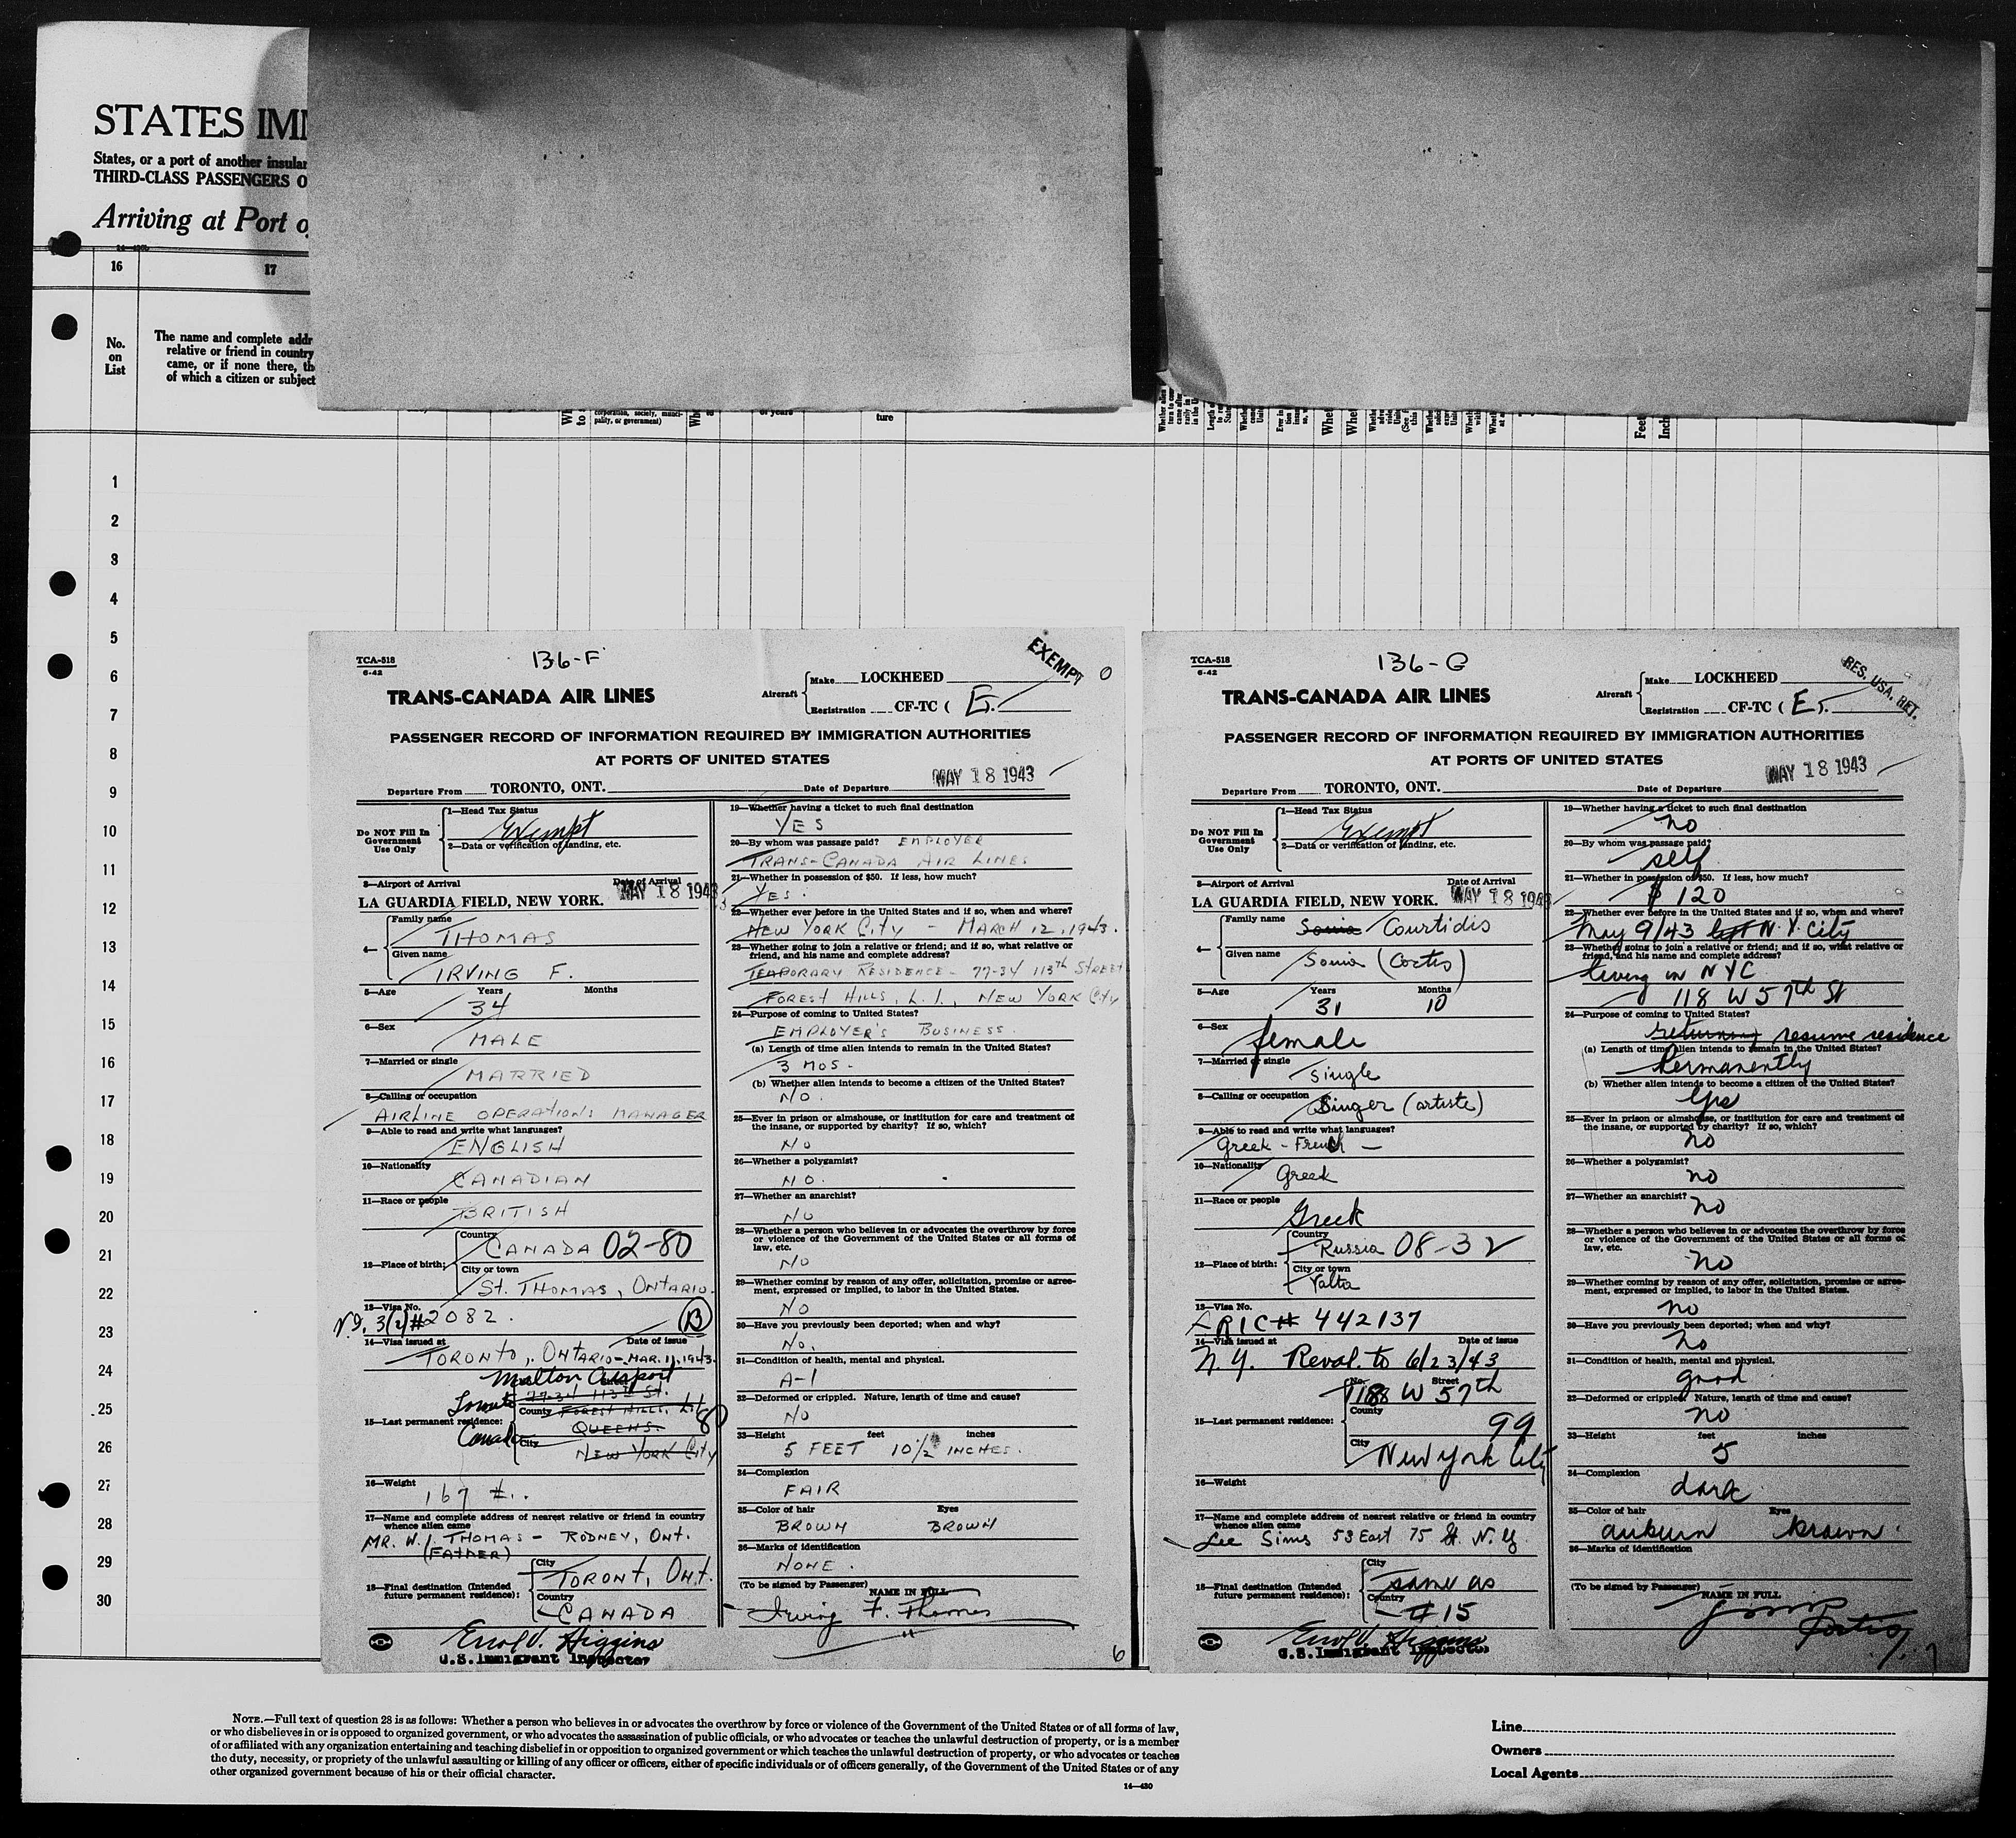 STATES IMM
States, or a port of another insular
THIRD-CLASS PASSENGERS O
Arriving at Port o
16
17
No.
on
List
The name and complete addr
relative or friend in country
came, or if none there, th
of which a citizen or subject
corporation, society, munci-
pality, or government)
of years
ture
Feet
Inch
1
2
3
4
5
6
7
8
9
10
11
12
13
14
15
16
17
18
19
20
21
22
23
24
25
26
27
28
29
30
TCA-518
6-42
136-F
EXEMPT
0
TRANS-CANADA AIR LINES
Aircraft
Make LOCKHEED
Registration CF-TC ( E.
PASSENGER RECORD OF INFORMATION REQUIRED BY IMMIGRATION AUTHORITIES
AT PORTS OF UNITED STATES
Departure From TORONTO, ONT. Date of Departure MAY 18 1943
Do NOT Fill In
Government
Use Only
1—Head Tax Status
Exempt
2—Data or verification of landing, etc.
3—Airport of Arrival Date of Arrival
LA GUARDIA FIELD, NEW YORK. MAY 18 1943
4—
Family name
THOMAS
Given name
IRVING F.
5—Age Years Months
34
6—Sex
MALE
7—Married or single
MARRIED
8—Calling or occupation
AIRLINE OPERATIONS MANAGER
9—Able to read and write what languages?
ENGLISH
10—Nationality
CANADIAN
11—Race or people
BRITISH
12—Place of birth:
Country
CANADA 02-80
City or town
ST. THOMAS, ONTARIO.
13—Visa No.
3(2) #2082. B
14—Visa issued at Date of issue
TORONTO, ONTARIO - MAR. 11, 1943.
Malton Airport
Toronto 77-34 113TH ST.
15—Last permanent residence:
County FOREST HILLS, L.I. 80
QUEENS.
Canada City NEW YORK CITY
16—Weight
167 #.
17—Name and complete address of nearest relative or friend in country
whence alien came
MR. W.J. THOMAS - RODNEY, ONT.
(FATHER)
18—Final destination (Intended
future permanent residence):
City
TORONT, ONT.
Country
CANADA
Errol V. Higgins
U.S. Immigrant Inspector
19—Whether having a ticket to such final destination
YES
20—By whom was passage paid? EMPLOYER
TRANS-CANADA AIR LINES
21—Whether in possession of $50. If less, how much?
YES.
22—Whether ever before in the United States and if so, when and where?
NEW YORK CITY - MARCH 12, 1943.
23—Whether going to join a relative or friend; and if so, what relative or
friend, and his name and complete address?
TEMPORARY RESIDENCE - 77-34 113TH STREET
FOREST HILLS, L.I., NEW YORK CITY
24—Purpose of coming to United States?
EMPLOYER'S BUSINESS.
(a) Length of time alien intends to remain in the United States?
3 MOS.
(b) Whether alien intends to become a citizen of the United States?
NO.
25—Ever in prison or almshouse, or institution for care and treatment of
the insane, or supported by charity? If so, which?
NO
26—Whether a polygamist?
NO.
27—Whether an anarchist?
NO
28—Whether a person who believes in or advocates the overthrow by force
or violence of the Government of the United States or all forms of
law, etc.
NO
29—Whether coming by reason of any offer, solicitation, promise or agree-
ment, expressed or implied, to labor in the United States.
NO
30—Have you previously been deported; when and why?
NO.
31—Condition of health, mental and physical.
A-1
32—Deformed or crippled. Nature, length of time and cause?
NO
33—Height feet inches
5 FEET 10 1/2 INCHES.
34—Complexion
FAIR
35—Color of hair Eyes
BROWN BROWN
36—Marks of identification
NONE.
(To be signed by Passenger) NAME IN FULL
Irving F. Thomas
6
TCA-518
6-42
136-G
RES. USA. RET.
TRANS-CANADA AIR LINES
Aircraft
Make LOCKHEED
Registration CF-TC ( E.
PASSENGER RECORD OF INFORMATION REQUIRED BY IMMIGRATION AUTHORITIES
AT PORTS OF UNITED STATES
Departure From TORONTO, ONT. Date of Departure MAY 18 1943
Do NOT Fill In
Government
Use Only
1—Head Tax Status
Exempt
2—Data or verification of landing, etc.
3—Airport of Arrival Date of Arrival
LA GUARDIA FIELD, NEW YORK. MAY 18 1943
4—
Family name
Sonia Courtidis
Given name
Sonia (Cortis)
5—Age Years Months
31 10
6—Sex
female
7—Married or single
Single
8—Calling or occupation
Singer (artiste)
9—Able to read and write what languages?
Greek - French —
10—Nationality
Greek
11—Race or people
Greek
12—Place of birth:
Country
Russia 08-32
City or town
Yalta
13—Visa No.
RIC # 442137
14—Visa issued at Date of issue
N.Y. Reval. to 6/23/43
15—Last permanent residence:
No. Street
118 W 57th
County
99
City
New York City
16—Weight
17—Name and complete address of nearest relative or friend in country
whence alien came
Lee Sims 53 East 75 St. N.Y.
18—Final destination (Intended
future permanent residence):
City
same as
Country
#15
Errol V. Higgins
U.S. Immigrant Inspector
19—Whether having a ticket to such final destination
no
20—By whom was passage paid?
self
21—Whether in possession of $50. If less, how much?
$120
22—Whether ever before in the United States and if so, when and where?
May 9/43 left N.Y. City
23—Whether going to join a relative or friend; and if so, what relative or
friend, and his name and complete address?
living in NYC
118 W 57th St
24—Purpose of coming to United States?
returning resume residence
(a) Length of time alien intends to remain in the United States?
Permanently
(b) Whether alien intends to become a citizen of the United States?
Yes
25—Ever in prison or almshouse, or institution for care and treatment of
the insane, or supported by charity? If so, which?
no
26—Whether a polygamist?
no
27—Whether an anarchist?
no
28—Whether a person who believes in or advocates the overthrow by force
or violence of the Government of the United States or all forms of
law, etc.
no
29—Whether coming by reason of any offer, solicitation, promise or agree-
ment, expressed or implied, to labor in the United States.
no
30—Have you previously been deported; when and why?
no
31—Condition of health, mental and physical.
good
32—Deformed or crippled. Nature, length of time and cause?
no
33—Height feet inches
5
34—Complexion
dark
35—Color of hair Eyes
auburn brown.
36—Marks of identification
(To be signed by Passenger) NAME IN FULL
7
NOTE.—Full text of question 28 is as follows: Whether a person who believes in or advocates the overthrow by force or violence of the Government of the United States or of all forms of law,
or who disbelieves in or is opposed to organized government, or who advocates the assassination of public officials, or who advocates or teaches the unlawful destruction of property, or is a member
of or affiliated with any organization entertaining and teaching disbelief in or opposition to organized government or which teaches the unlawful destruction of property, or who advocates or teaches
the duty, necessity, or propriety of the unlawful assaulting or killing of any officer or officers, either of specific individuals or of officers generally, of the Government of the United States or of any
other organized government because of his or their official character.
14—430
Line
Owners
Local Agents